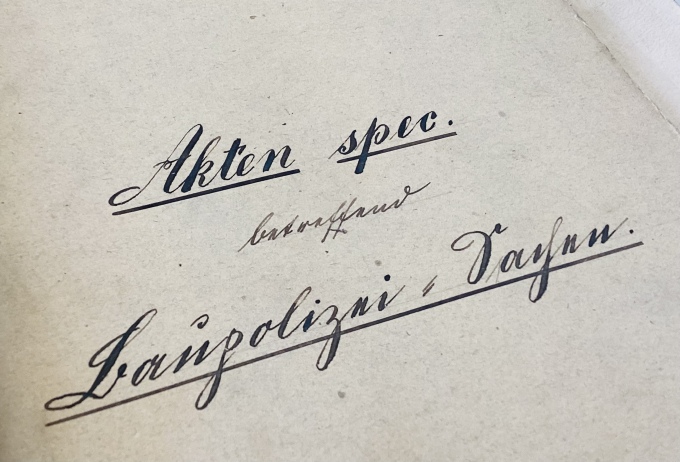 Akten spec.
betreffend
Baupolizei-Sachen.